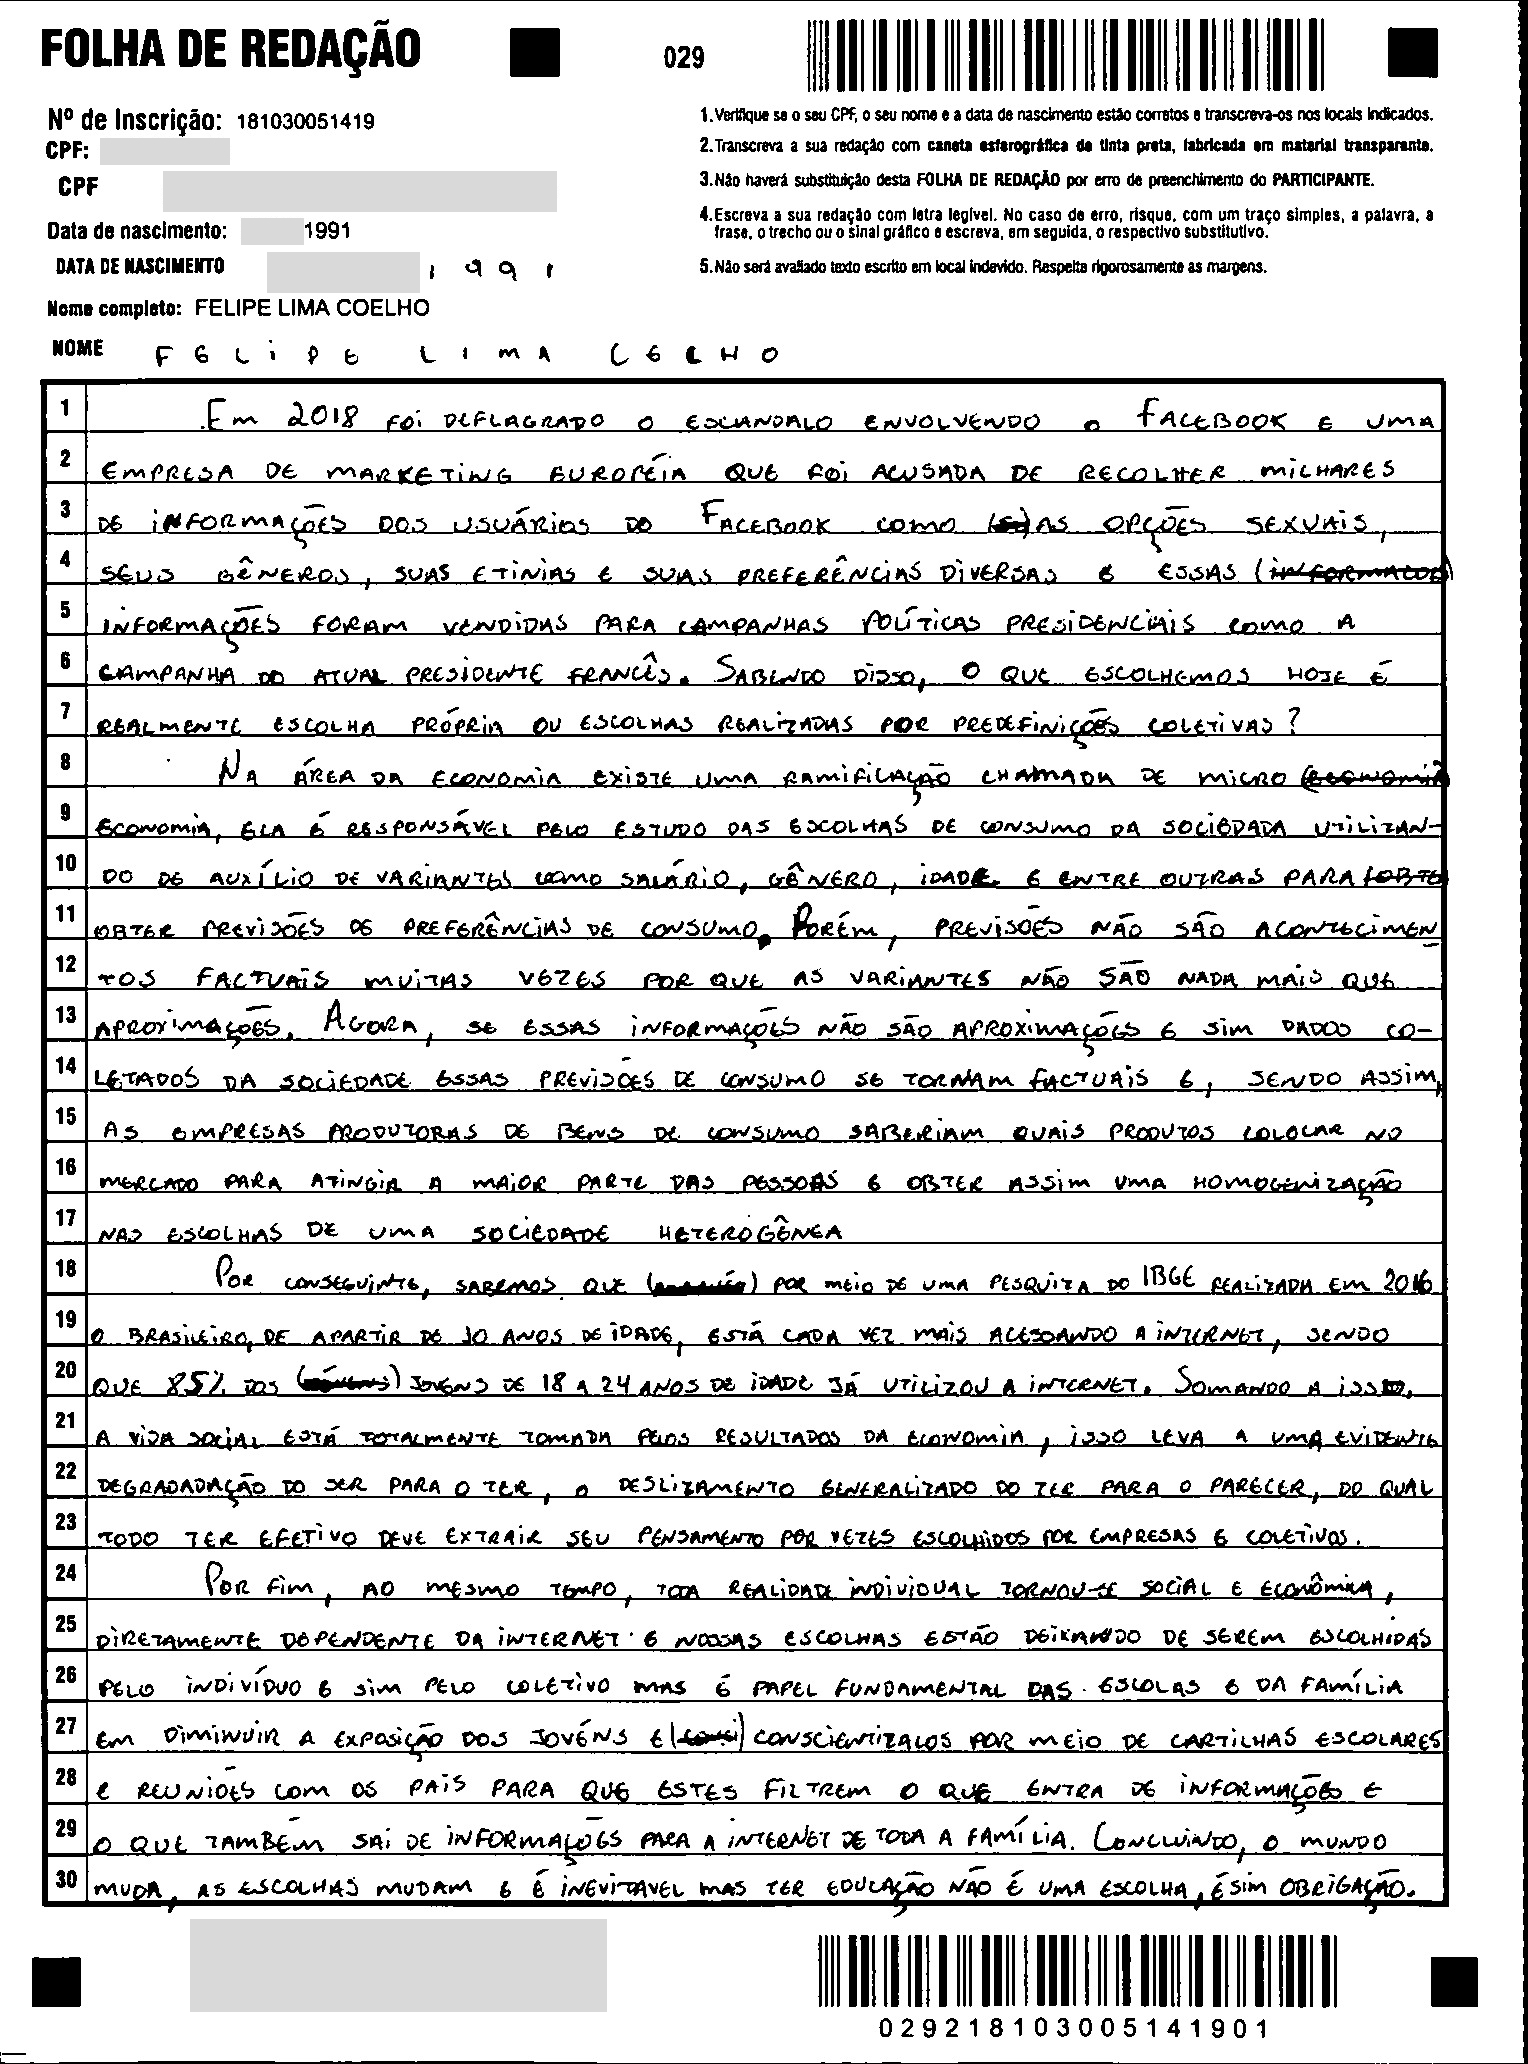 FOLHA DE REDAÇÃO
029
Nº de Inscrição: 181030051419
CPF:
CPF
Data de nascimento: 1991
DATA DE NASCIMENTO 1991
Nome completo: FELIPE LIMA COELHO
NOME FELIPE LIMA COELHO
1.Verifique se o seu CPF, o seu nome e a data de nascimento estão corretos e transcreva-os nos locais indicados.
2.Transcreva a sua redação com caneta esferográfica de tinta preta, fabricada em material transparente.
3.Não haverá substituição desta FOLHA DE REDAÇÃO por erro de preenchimento do PARTICIPANTE.
4.Escreva a sua redação com letra legível. No caso de erro, risque, com um traço simples, a palavra, a
frase, o trecho ou o sinal gráfico e escreva, em seguida, o respectivo substitutivo.
5.Não será avaliado texto escrito em local indevido. Respeite rigorosamente as margens.
1 EM 2018 FOI DEFLAGRADO O ESCANDALO ENVOLVENDO O FACEBOOK E UMA
2 EMPRESA DE MARKETING EUROPÉIA QUE FOI ACUSADA DE RECOLHER MILHARES
3 DE INFORMAÇÕES DOS USUÁRIOS DO FACEBOOK COMO AS OPÇÕES SEXUAIS,
4 SEUS GÊNEROS, SUAS ETINIAS E SUAS PREFERÊNCIAS DIVERSAS E ESSAS (INFORMACOE)
5 INFORMAÇÕES FORAM VENDIDAS PARA CAMPANHAS POLÍTICAS PRESIDENCIAIS COMO A
6 CAMPANHA DO ATUAL PRESIDENTE FRANCÊS. SABENDO DISSO, O QUE ESCOLHEMOS HOJE É
7 REALMENTE ESCOLHA PRÓPRIA OU ESCOLHAS REALIZADAS POR PREDEFINIÇÕES COLETIVAS?
8 NA ÁREA DA ECONOMIA EXISTE UMA RAMIFICAÇÃO CHAMADA DE MICRO (ECONOMIA
9 ECONOMIA, ELA É RESPONSÁVEL PELO ESTUDO DAS ESCOLHAS DE CONSUMO DA SOCIEDADA UTILIZAN-
10 DO DE AUXÍLIO DE VARIANTES COMO SALÁRIO, GÊNERO, IDADE E ENTRE OUTRAS PARA
11 OBTER PREVISÕES DE PREFERÊNCIAS DE CONSUMO. PORÉM, PREVISÕES NÃO SÃO ACONTECIMEN
12 TOS FACTUAIS MUITAS VEZES POR QUE AS VARIANTES NÃO SÃO NADA MAIS QUE
13 APROXIMAÇÕES. AGORA, SE ESSAS INFORMAÇÕES NÃO SÃO APROXIMAÇÕES E SIM DADOS CO-
14 LETADOS DA SOCIEDADE ESSAS PREVISÕES DE CONSUMO SE TORNAM FACTUAIS E, SENDO ASSIM,
15 AS EMPRESAS PRODUTORAS DE BENS DE CONSUMO SABERIAM QUAIS PRODUTOS COLOCAR NO
16 MERCADO PARA ATINGIR A MAIOR PARTE DAS PESSOAS E OBTER ASSIM UMA HOMOGENIZAÇÃO
17 NAS ESCOLHAS DE UMA SOCIEDADE HETEROGÊNEA
18 POR CONSEGUINTE, SABEMOS QUE POR MEIO DE UMA PESQUIZA DO IBGE REALIZADA EM 2016
19 O BRASILEIRO, DE APARTIR DE 10 ANOS DE IDADE, ESTÁ CADA VEZ MAIS ACESSANDO A INTERNET, SENDO
20 QUE 85% DOS JOVENS DE 18 A 24 ANOS DE IDADE JÁ UTILIZOU A INTERNET. SOMANDO A ISSO,
21 A VIDA SOCIAL ESTÁ TOTALMENTE TOMADA PELOS RESULTADOS DA ECONOMIA, ISSO LEVA A UMA EVIDENTE
22 DEGRADADAÇÃO DO SER PARA O TER, O DESLIZAMENTO GENERALIZADO DO TER PARA O PARECER, DO QUAL
23 TODO TER EFETIVO DEVE EXTRAIR SEU PENSAMENTO POR VEZES ESCOLHIDOS POR EMPRESAS E COLETIVOS.
24 POR FIM, AO MESMO TEMPO, TODA REALIDADE INDIVIDUAL TORNOU-SE SOCIAL E ECONÔMICA,
25 DIRETAMENTE DEPENDENTE DA INTERNET E NOSSAS ESCOLHAS ESTÃO DEIXANDO DE SEREM ESCOLHIDAS
26 PELO INDIVÍDUO E SIM PELO COLETIVO MAS É PAPEL FUNDAMENTAL DAS ESCOLAS E DA FAMÍLIA
27 EM DIMINUIR A EXPOSIÇÃO DOS JOVÉNS E CONSCIENTIZALOS POR MEIO DE CARTILHAS ESCOLARES
28 E REUNIÕES COM OS PAIS PARA QUE ESTES FILTREM O QUE ENTRA DE INFORMAÇÕES E
29 O QUE TAMBÉM SAI DE INFORMAÇÕES PARA A INTERNET DE TODA A FAMÍLIA. CONCLUINDO, O MUNDO
30 MUDA, AS ESCOLHAS MUDAM E É INEVITAVEL MAS TER EDUCAÇÃO NÃO É UMA ESCOLHA, É SIM OBRIGAÇÃO.
029218103005141901